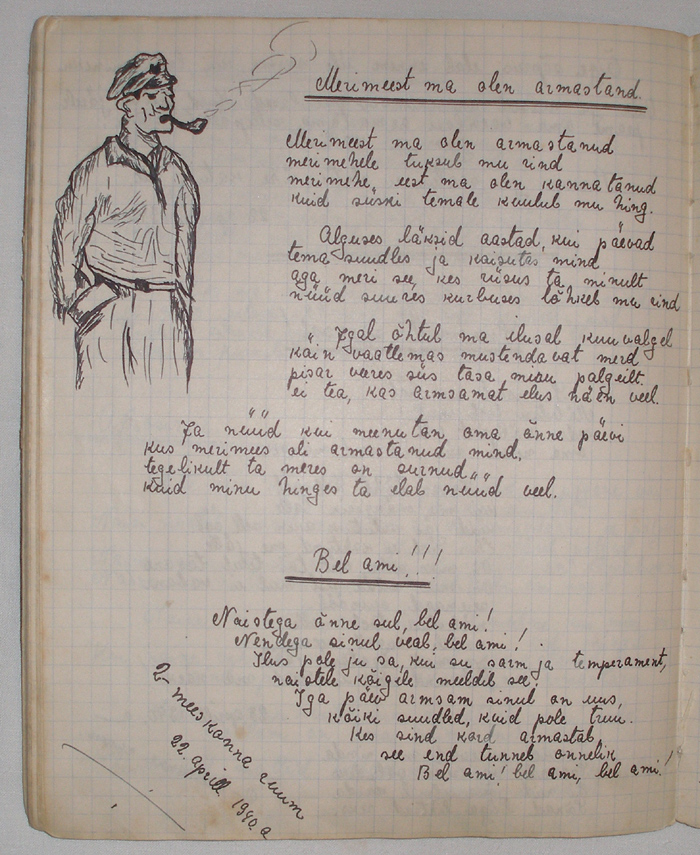 Merimeest ma olen armastand.
Merimeest ma olen armastanud
merimehele tuksub mu rind
merimehe eest ma olen kannatanud
kuid siiski temale kuulub mu hing.
Alguses läksid aastad, kui päevad
tema suudles ja kaisutas mind
aga meri see, kes riisus ta minult
nüüd suures kurbuses lõhkeb mu rind
Igal õhtul ma ilusal kuuvalgel
käin vaatlemas mustendavat merd
pisar veeres siis tasa minu palgeilt.
ei tea, kas armsamat elus näen veel.
Ja nüüd kui meenutan oma õnne päevi
kus merimees oli armastanud mind.
tegelikult ta meres on surnud
kuid minu hinges ta elab nüüd veel.
Bel ami!!!
Naistega õnne sul, bel ami!
Nendega sinul veab, bel ami!
Ilus pole ju sa, kui su sarm ja temperament,
naistele kõigile meeldib see.
Iga päev armsam sinul on uus,
kõiki suudled, kuid pole truu.
Kes sind kord armastab,
see end tunneb õnnelik
Bel ami! bel ami, bel ami!
2- meeskonna ruum
22. aprill 1940.a